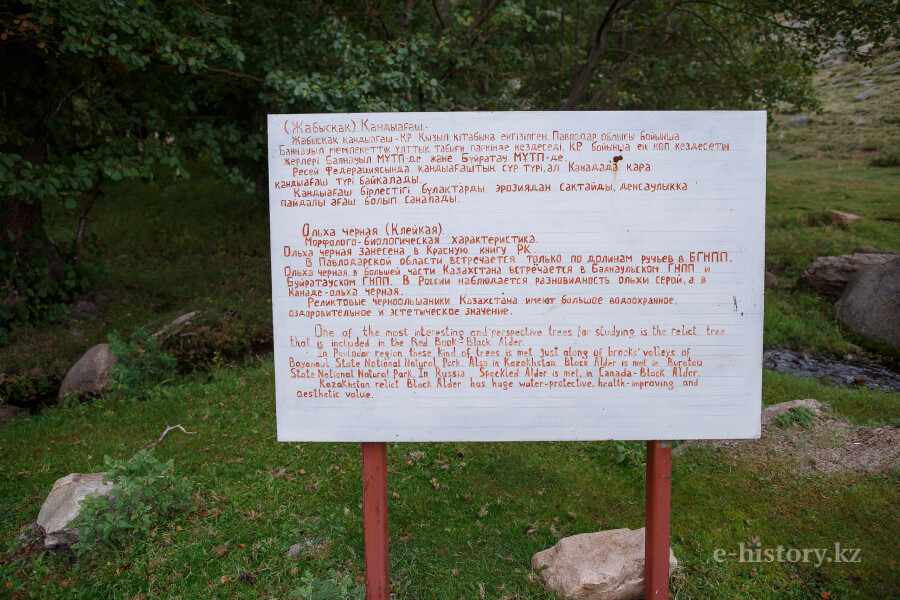 (Жабысқақ) Қандыағаш.
Жабысқақ қандыағаш-ҚР Қызыл кітабына енгізілген. Павлодар облысы бойынша
Баянауыл мемлекеттік ұлттық табиғи паркінде кездеседі. ҚР бойынша ең көп кездесетін
жерлері Баянауыл МҰТП-де және Бұйратау МҰТП-де.
Ресей Федерациясында қандыағаштың сұр түрі, ал Канадада қара
қандыағаш түрі байқалады.
Қандыағаш бірлестігі бұлақтарды эрозиядан сақтайды, денсаулыққа
пайдалы ағаш болып саналады.
Ольха чёрная (Клейкая)
Морфолого-биологическая характеристика.
Ольха черная занесена в Красную книгу РК.
В Павлодарской области встречается только по долинам ручьев в БГНПП.
Ольха черная в большей части Казахстана встречается в Баянаульском ГНПП и
Буйратауском ГНПП. В России наблюдается разновидность ольхи серой, а в
Канаде-ольха черная.
Реликтовые черноольшаники Казахстана имеют большое водоохранное,
оздоровительное и эстетическое значение.
One of the most interesting and perspective trees for studying is the relict tree
that is included in the Red Book-Black Alder.
In Pavlodar region these kind of trees is met just along of brooks' valleys of
Bayanaul State National Natural Park. Also in Kazakhstan Black Alder is met in Buratau
State National Natural Park. In Russia Speckled Alder is met, in Canada-Black Alder.
Kazakhstan relict Black Alder has huge water-protective, health-improving and
aesthetic value.
e-history.kz